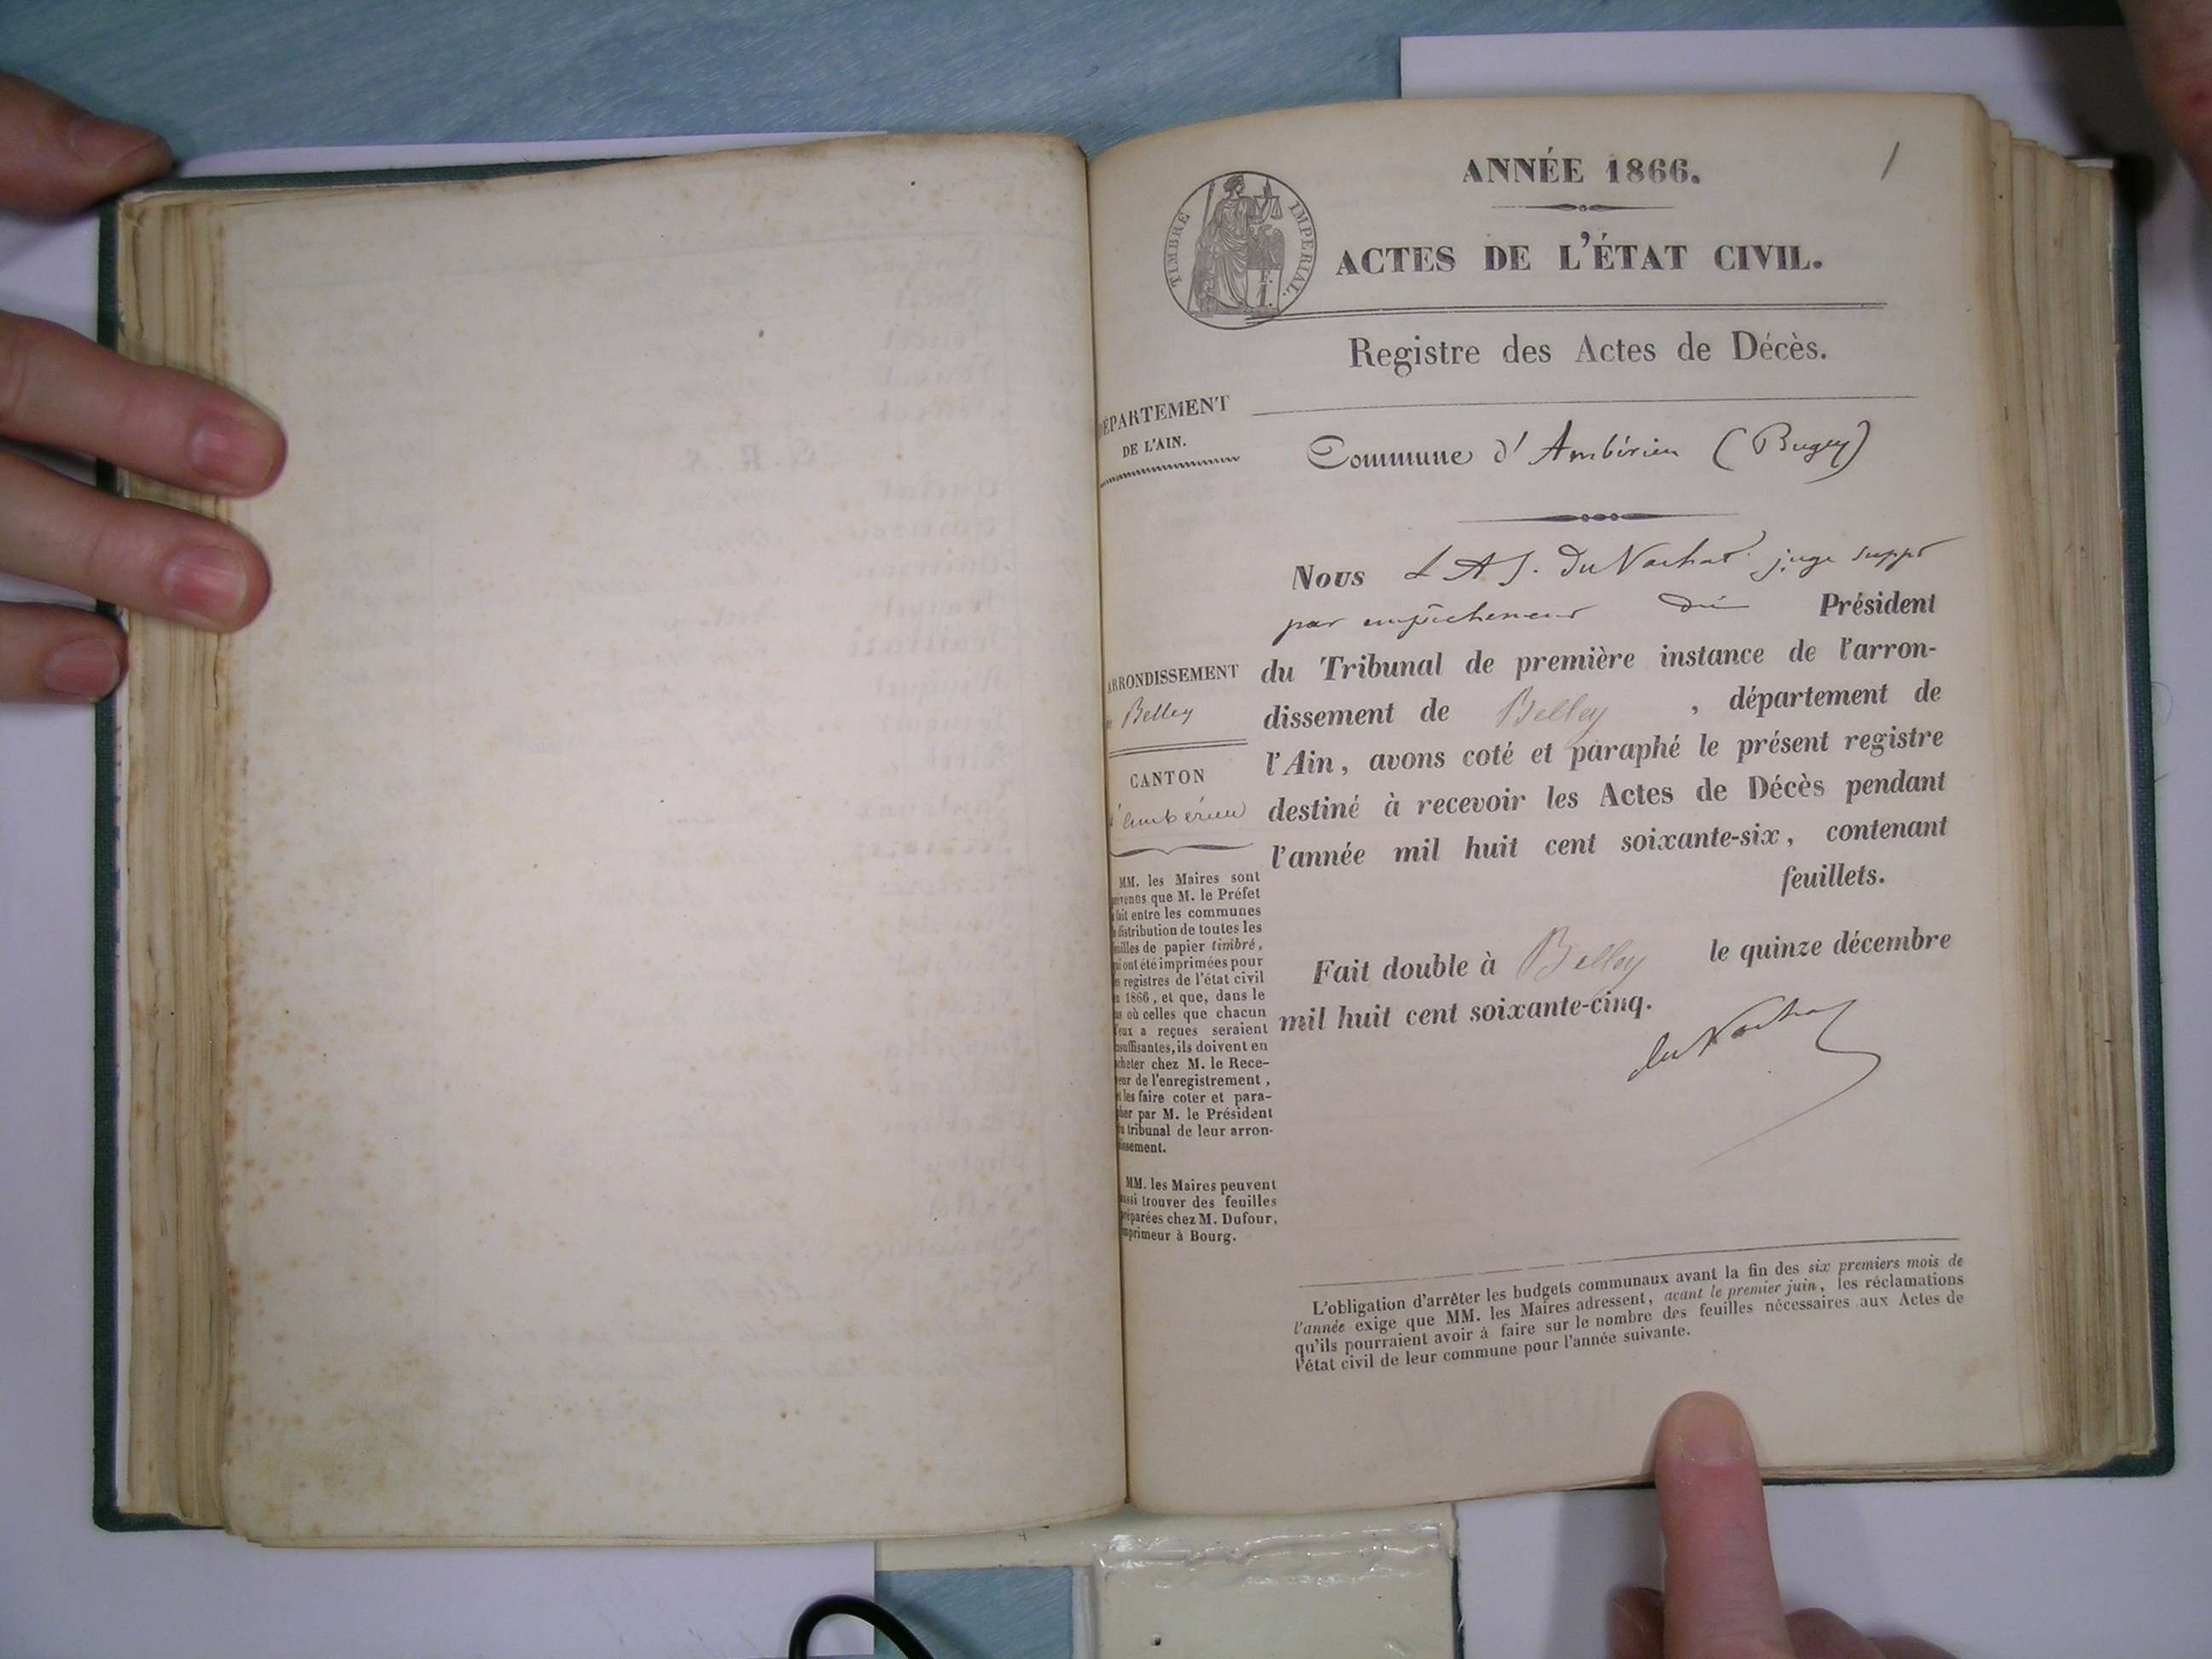 1
ANNÉE 1866.
TIMBRE IMPERIAL.
ACTES DE L'ÉTAT CIVIL.
Registre des Actes de Décès.
DÉPARTEMENT
DE L'AIN.
Commune d'Ambérieu (Bugey)
Nous L A J. Du Vachat juge suppt
par empêchement du Président
du Tribunal de première instance de l'arron-
dissement de Belley, département de
l'Ain, avons coté et paraphé le présent registre
destiné à recevoir les Actes de Décès pendant
l'année mil huit cent soixante-six, contenant
feuillets.
Fait double à Belley le quinze décembre
mil huit cent soixante-cinq.
du Vachat
ARRONDISSEMENT
de Belley
CANTON
d'ambérieu
MM. les Maires sont
prévenus que M. le Préfet
a fait entre les communes
la distribution de toutes les
feuilles de papier timbré,
qui ont été imprimées pour
les registres de l'état civil
en 1866, et que, dans le
cas où celles que chacun
d'eux a reçues seraient
insuffisantes, ils doivent en
acheter chez M. le Rece-
veur de l'enregistrement,
et les faire coter et para-
pher par M. le Président
du tribunal de leur arron-
dissement.
MM. les Maires peuvent
aussi trouver des feuilles
préparées chez M. Dufour,
imprimeur à Bourg.
L'obligation d'arrêter les budgets communaux avant la fin des six premiers mois de
l'année exige que MM. les Maires adressent, avant le premier juin, les réclamations
qu'ils pourraient avoir à faire sur le nombre des feuilles nécessaires aux Actes de
l'état civil de leur commune pour l'année suivante.